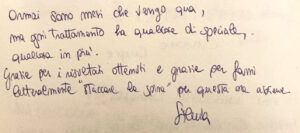 Ormai sono mesi che vengo qua,
ma ogni trattamento ha qualcosa di speciale,
qualcosa in più.
Grazie per i risultati ottenuti e grazie per farmi
letteralmente "staccare la spina" per questa ora assieme.